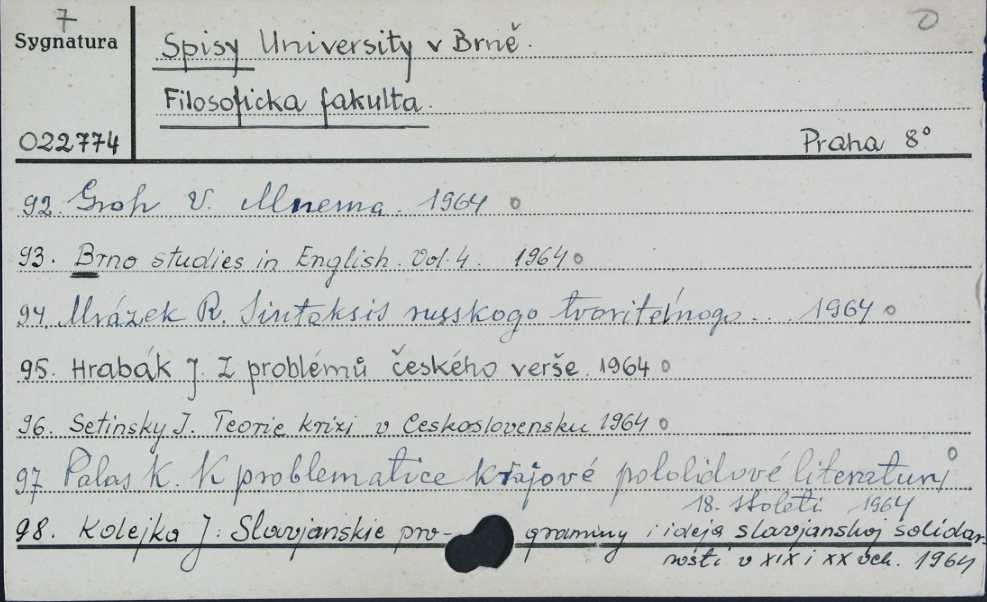 7
Sygnatura
Spisy University v Brně.
Filosoficka fakulta.
022774
Praha 8°
92. Groh V. Mnema. 1964
93. Brno studies in English. Vol. 4. 1964
94. Mrázek R. Sintaksis russkogo tvoritél'nogo... 1964
95. Hrabák J. Z problémů českého verše. 1964
96. Setinsky J. Teorie krizi v Ceskoslovensku 1964
97 Palas K. K problematice krajové pololidové literatury
18. století 1964
98. Kolejka J: Slavjanskie pro- grammy i ideja slavjanskoj solidar-
nosti v XIX i XX vek. 1964